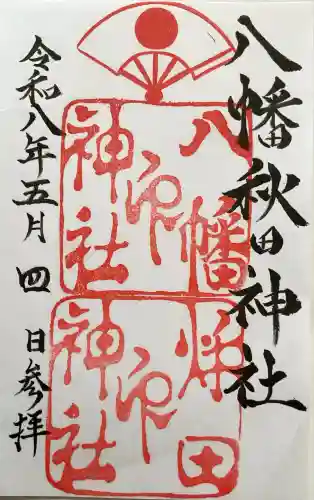 八幡秋田神社
八幡
神社印
秋田
神社印
令和八年五月四日参拝